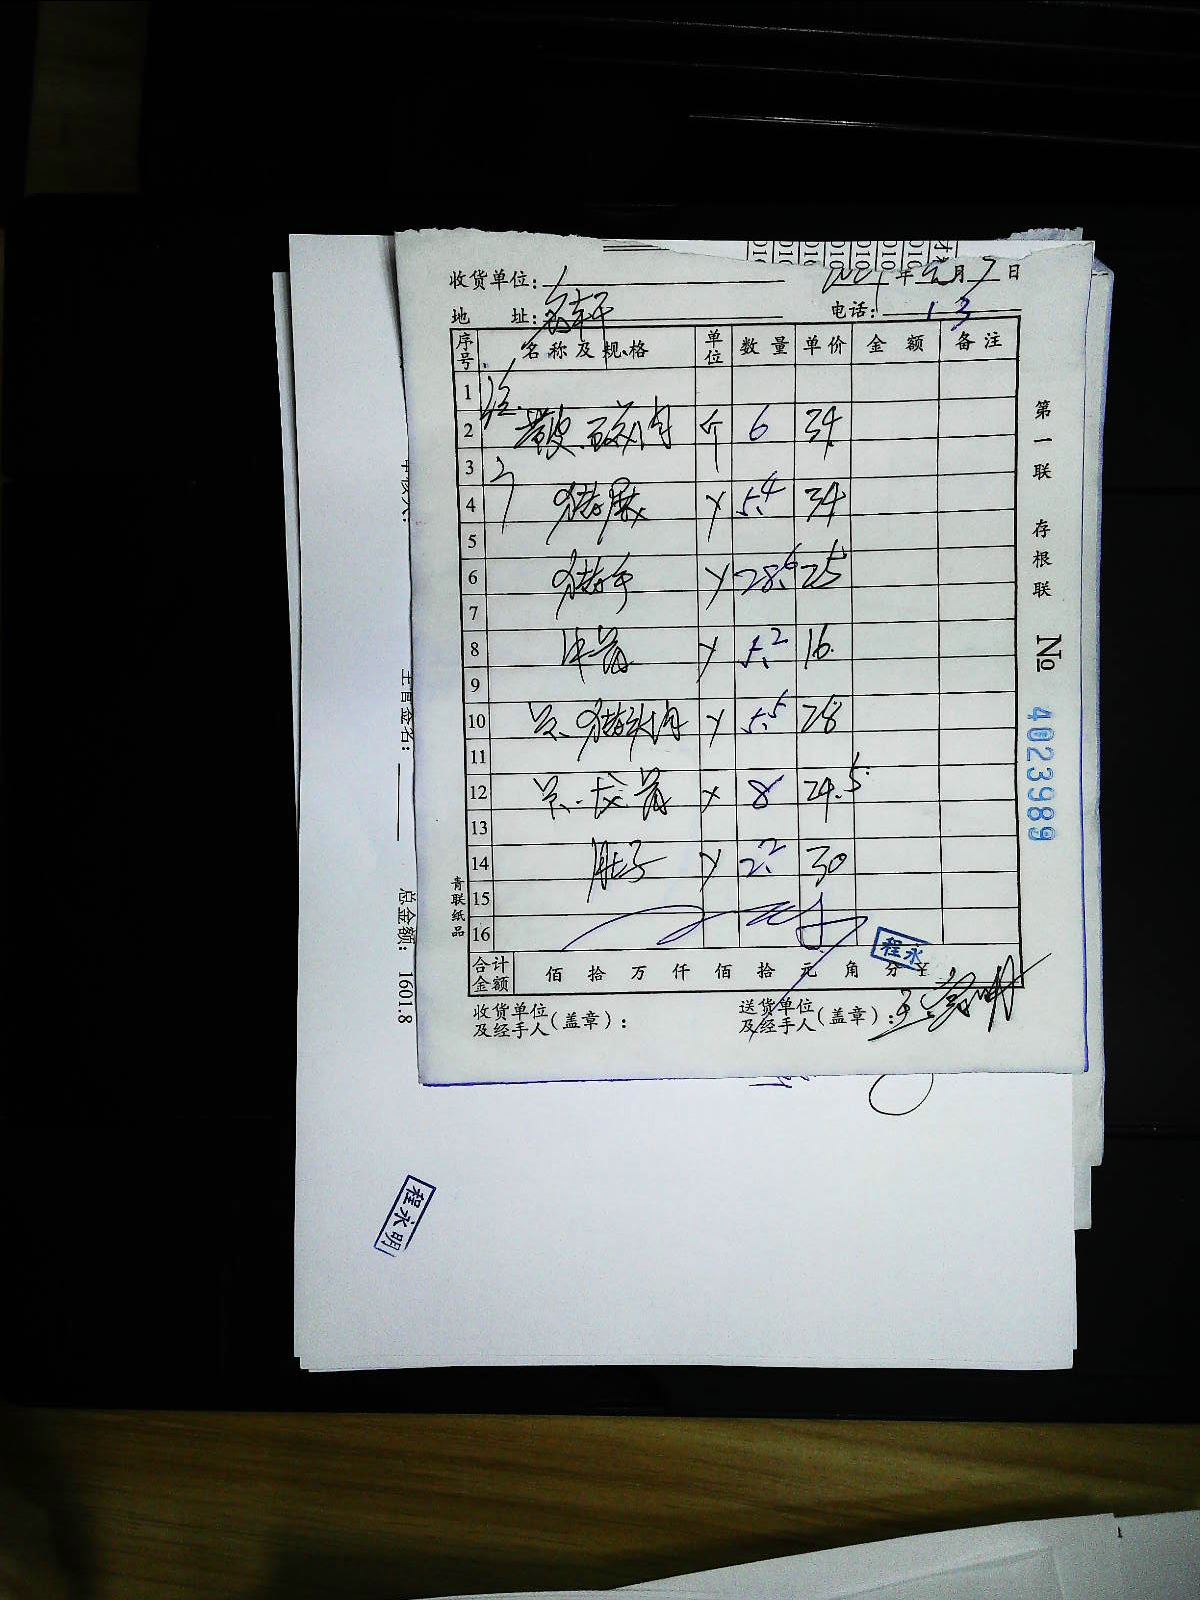 收货单位:
年 月 7 日
地 址: 轩
电话: 13
序号 名称及规格 单位 数量 单价 金额 备注
1
2 带皮 肉 斤 6 34
3
4 猪展 5.4 34
5
6 猪手 28.6 25
7
8 5.2 16
9
10 猪头肉 5.5 28
11
12 龙骨 8 24.5
13
14 肚子 2.2 30
15
16
合计金额 佰 拾 万 仟 佰 拾 元 角 分 ¥
程永
收货单位及经手人(盖章):
送货单位及经手人(盖章):
第一联 存根联
No 4023989
青联纸品
主管签名:
总金额: 1601.8
程永明